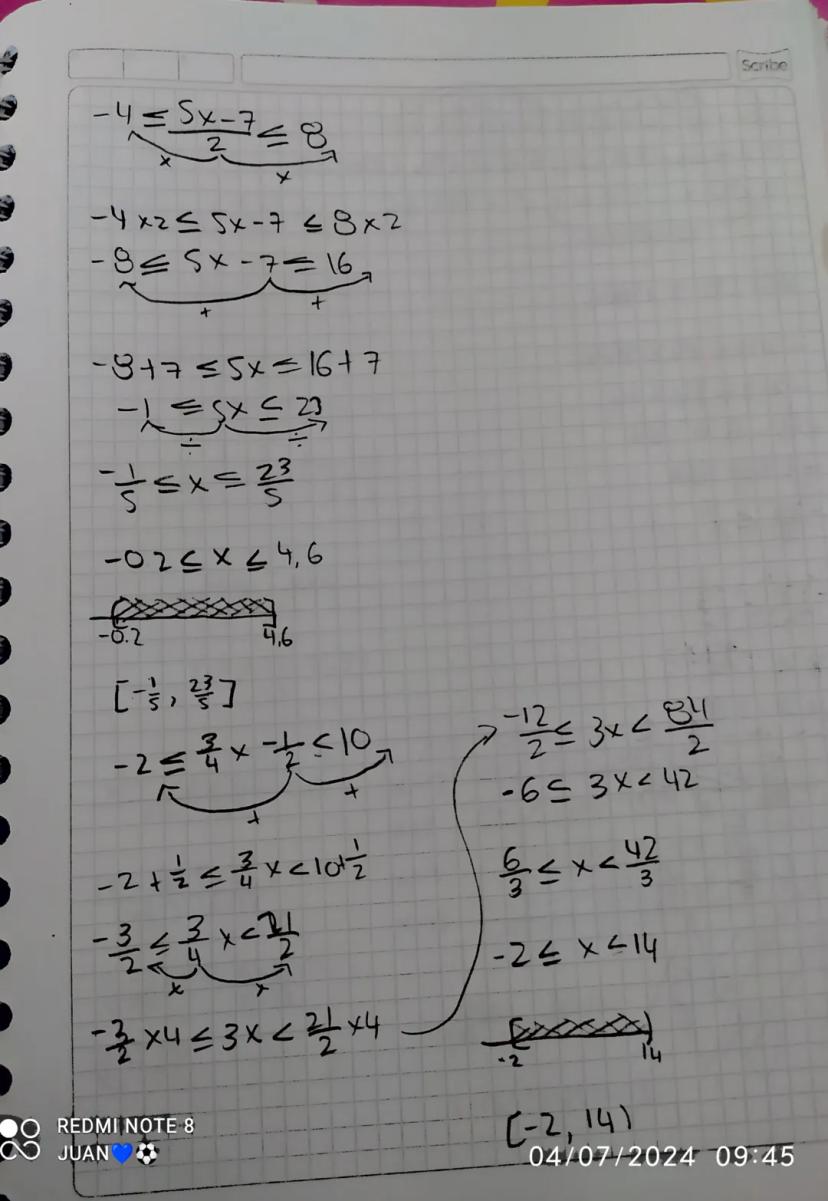 Scribe
-4 ≤ (5x-7)/2 ≤ 8
x x
-4×2 ≤ 5x-7 ≤ 8×2
-8 ≤ 5x-7 ≤ 16
+ +
-8+7 ≤ 5x ≤ 16+7
-1 ≤ 5x ≤ 23
÷ ÷
-1/5 ≤ x ≤ 23/5
-02 ≤ x ≤ 4,6
-0.2 4,6
[-1/5, 23/5]
-2 ≤ 3/4 x -1/2 ≤ 10
+ +
-2+1/2 ≤ 3/4 x < 10+1/2
-3/2 ≤ 3/4 x < 21/2
x x
-3/2 ×4 ≤ 3x < 21/2 ×4
-12/2 ≤ 3x < 84/2
-6 ≤ 3x < 42
6/3 ≤ x < 42/3
-2 ≤ x < 14
-2 14
[-2, 14)
REDMI NOTE 8
JUAN💙⚽
04/07/2024 09:45